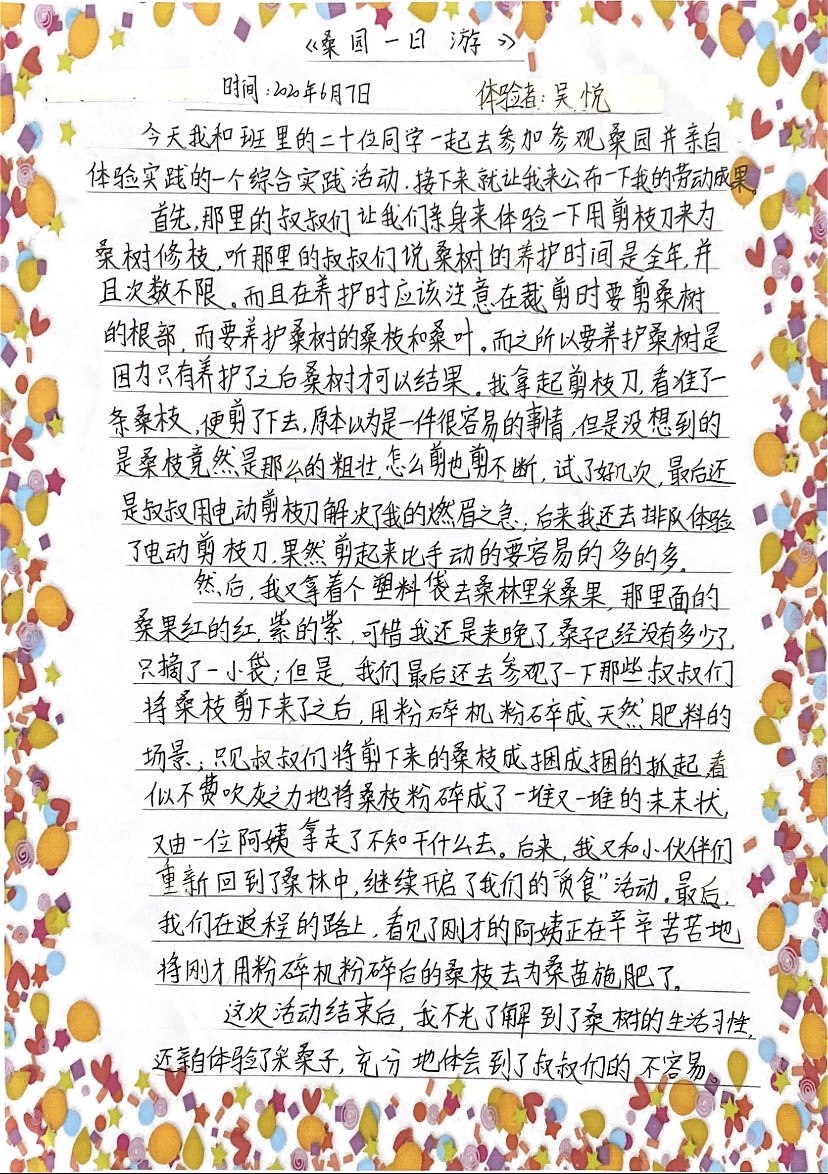 《桑园一日游》
时间:2020年6月7日 体验者:吴悦
今天我和班里的二十位同学一起去参加参观桑园并亲自
体验实践的一个综合实践活动,接下来就让我来公布一下我的劳动成果。
首先,那里的叔叔们让我们亲身来体验一下用剪枝刀来为
桑树修枝,听那里的叔叔们说桑树的养护时间是全年,并
且次数不限。而且在养护时应该注意在裁剪时要剪桑树
的根部,而要养护桑树的桑枝和桑叶。而之所以要养护桑树是
因为只有养护了之后桑树才可以结果。我拿起剪枝刀,看准了一
条桑枝,便剪了下去,原本以为是一件很容易的事情,但是没想到的
是桑枝竟然是那么的粗壮,怎么剪也剪不断,试了好几次,最后还
是叔叔用电动剪枝刀解决了我的燃眉之急;后来我还去排队体验
了电动剪枝刀,果然剪起来比手动的要容易的多的多。
然后,我又拿着个塑料袋去桑林里采桑果,那里面的
桑果红的红,紫的紫,可惜我还是来晚了,桑子已经没有多少了,
只摘了一小袋;但是,我们最后还去参观了一下那些叔叔们
将桑枝剪下来了之后,用粉碎机粉碎成天然肥料的
场景;只见叔叔们将剪下来的桑枝成捆成捆的抓起,看
似不费吹灰之力地将桑枝粉碎成了一堆又一堆的末末状,
又由一位阿姨拿走了不知干什么去。后来,我又和小伙伴们
重新回到了桑林中,继续开启了我们的“贪食”活动。最后,
我们在返程的路上,看见了刚才的阿姨正在辛辛苦苦地
将刚才用粉碎机粉碎后的桑枝去为桑苗施肥了。
这次活动结束后,我不光了解到了桑树的生活习性,
还亲自体验了采桑子,充分地体会到了叔叔们的不容易。